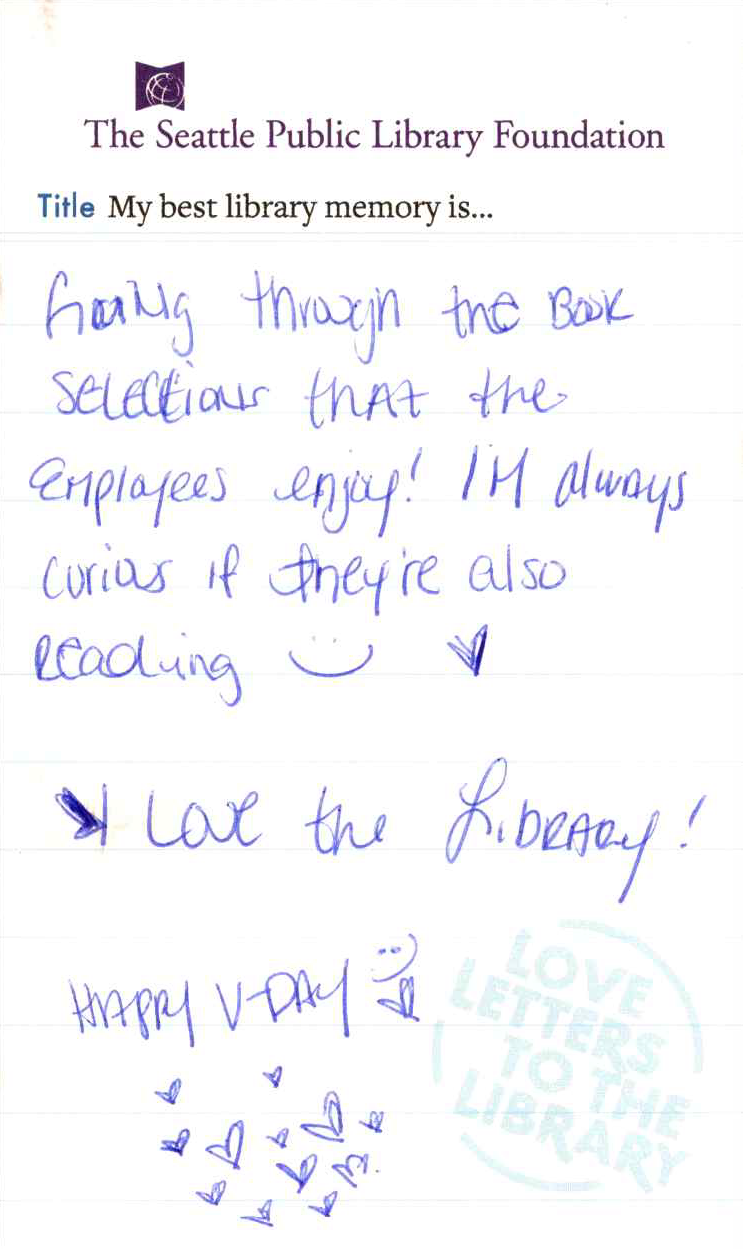 The Seattle Public Library Foundation
Title My best library memory is...
Going through the Book
Selections that the
Employees enjoy! I'M always
curious if they're also
Reading
I Love the LiBRARy!
HAPPY V-DAY
LOVE
LETTERS
TO THE
LIBRARY